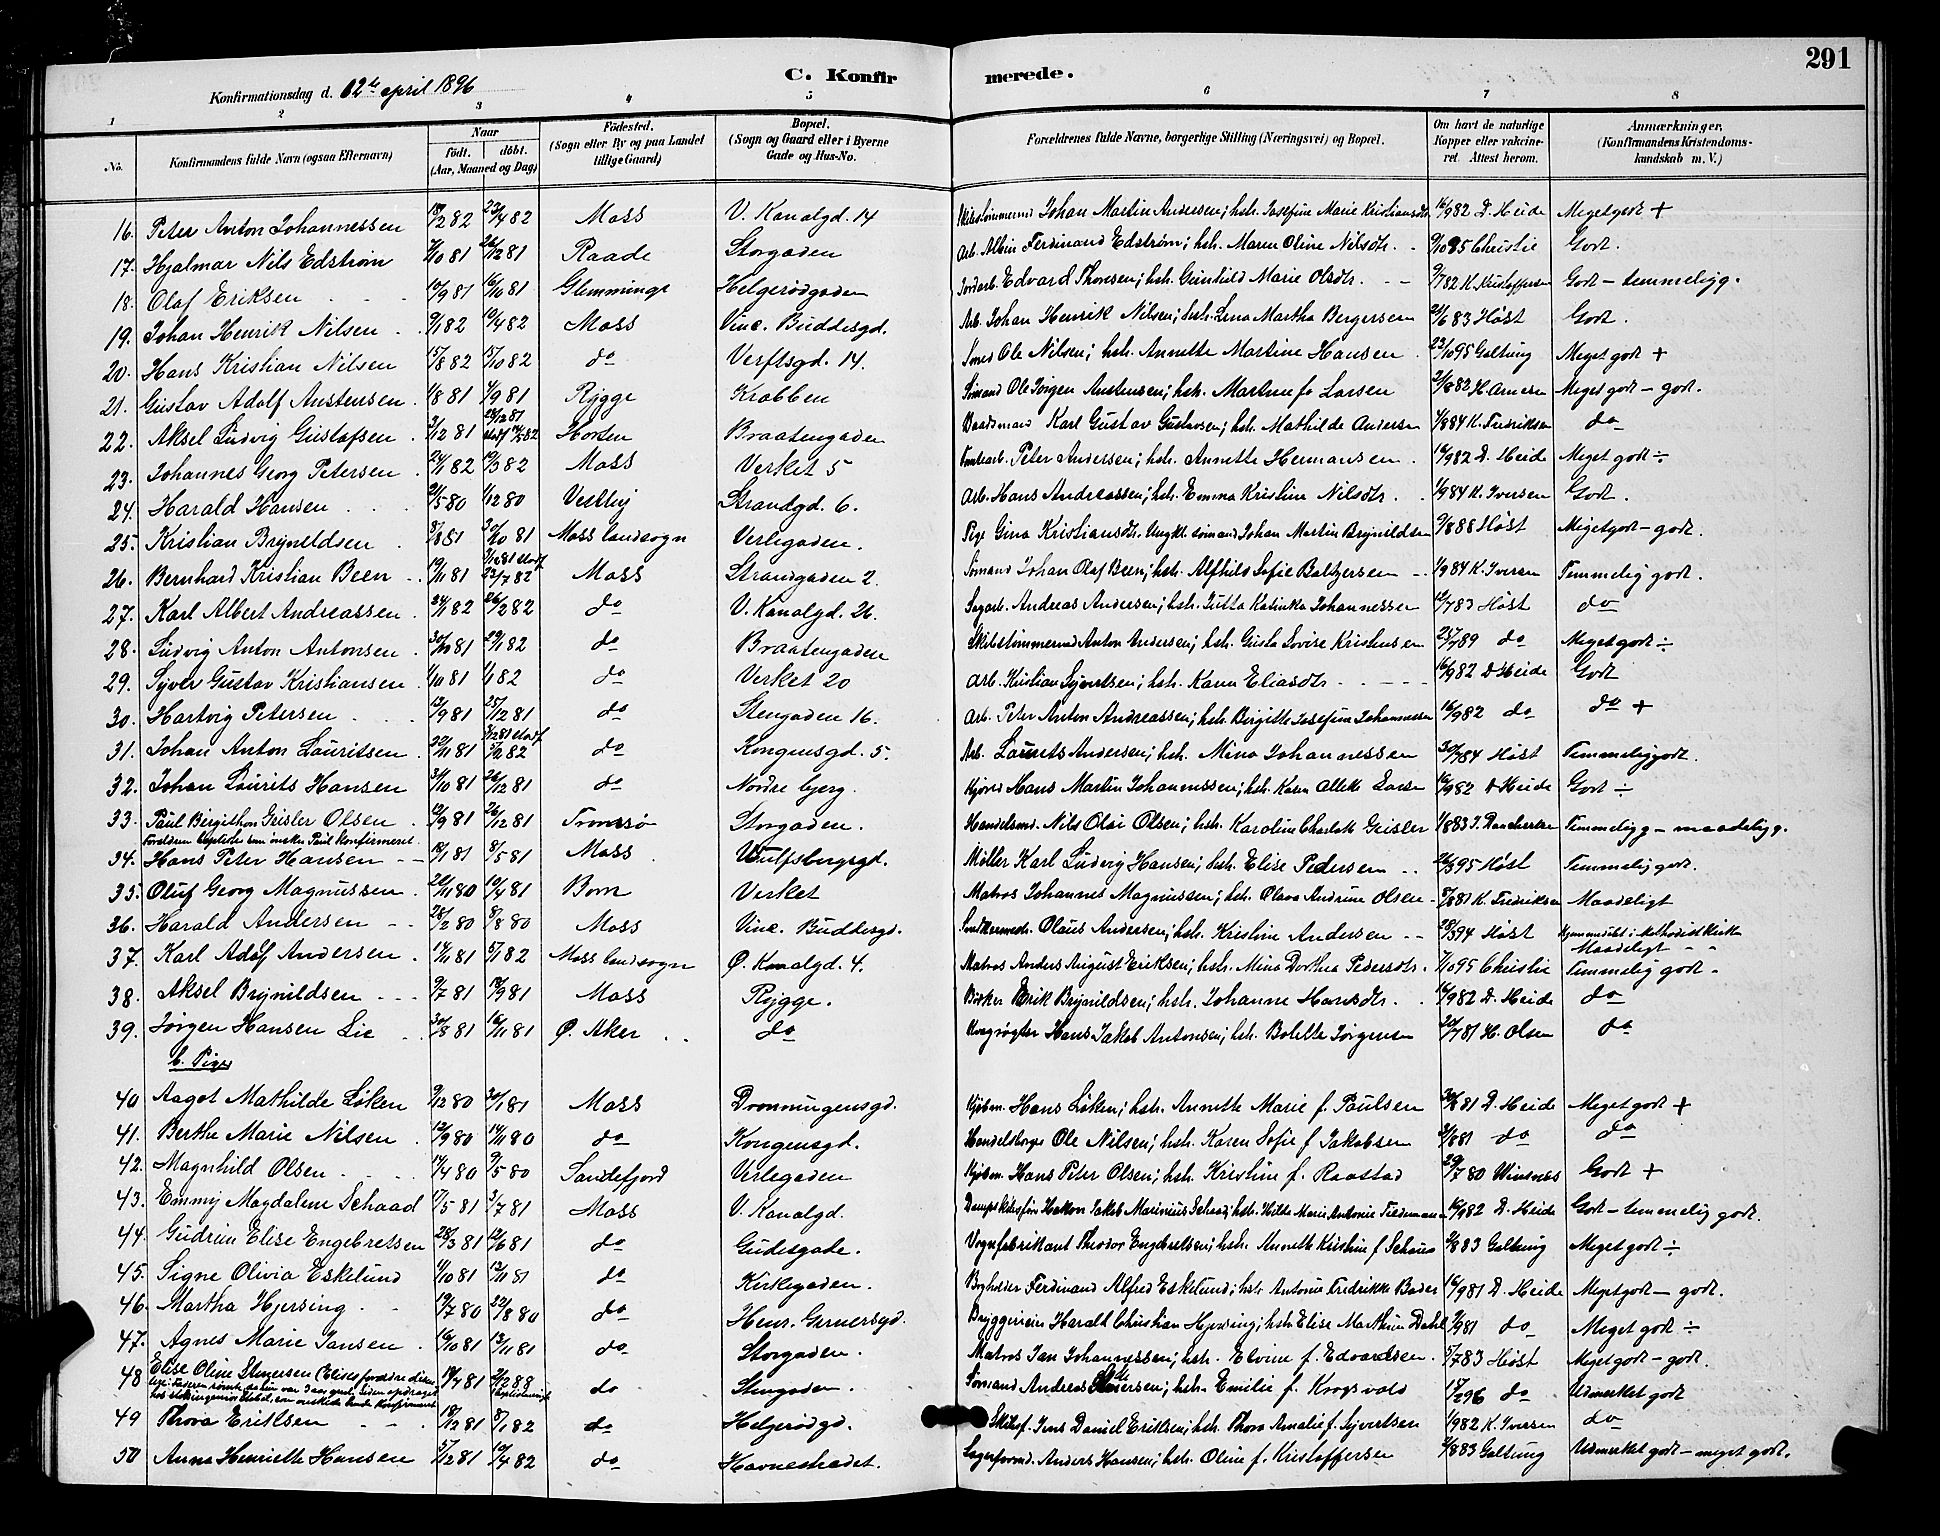 291
C. Konfirmerede.
Konfirmationsdag d. 12te april 1896
1 2 3 4 5 6 7 8
No. Konfirmandens fulde Navn (ogsaa Efternavn) Naar født. døbt. (Aar, Maaned og Dag) Fødested. (Sogn eller By og paa Landet tillige Gaard) Bopæl. (Sogn og Gaard eller i Byerne Gade og Hus-No. Forældrenes fulde Navne, borgerlige Stilling (Næringsvei) og Bopæl. Om havt de naturlige Kopper eller vakcineret. Attest herom. Anmærkninger, (Konfirmandens Kristendomskundskab m. V.)
16. Peter Anton Johannessen 2 82 23/4 82 Moss V. Kanalgd. 14 Johan Martin Andersen; hstr. Josefine Marie Kristiansdtr. 16/9 82 D. Heide Megetgodt +
17. Hjalmar Nils Edstrøm 10 81 26/12 81 Raade Storgaden Arb. Albin Ferdinand Edstrøm; hstr. Maren Oline Nilsdtr. 10 95 Christie Godt.
18. Olaf Eriksen 19/9 81 16/10 81 Glemminge Helgerødgaden Jordarb. Edvard Thorsen; hstr. Gunhild Marie Olsdtr. 9/7 82 K. Kristoffersen Godt - temmeligg.
19. Johan Henrik Nilsen 9/1 82 10/4 82 Moss Vinc. Buddesgd. Arb. Johan Henrik Nilsen; hstr. Lena Martha Bergersen 6 83 Høst Godt.
20. Hans Kristian Nilsen 15/8 82 15/10 82 do Verftsgd. 14. Smed Ole Nilsen; hstr. Annette Martine Hansen 23/10 95 Galtung Meget godt +
21. Gustav Adolf Anstensen 1/8 81 4/9 81 Rygge Krabben Sømand Ole Jørgen Anstensen; hstr. Martine f. Larsen 8 82 H. Arnesen Meget godt - godt.
22. Aksel Ludvig Gustafsen 3/12 81 26/12 81 stadf 14/5 82 Horten Braatengaden Baadsmand Karl Gustav Gustavsen; hstr. Mathilde Andersen 1/8 84 K. Fredriksen do
23. Johannes Georg Petersen 24/1 82 19/3 82 Moss Verket 5 Peter Andersen; hstr. Annette Hermansen 16/9 82 D. Heide Meget godt ÷
24. Harald Hansen 2/5 80 1/12 80 Vestby Strandgd. 6. Arb. Hans Andreassen; hstr. Emma Kristine Nilsdtr. 1/9 84 K. Iversen Godt.
25. Kristian Brynildsen 8 81 30/10 81 Moss landsogn Verlegaden. Pige Gina Kristiansdtr. Ungkl. sømand Johan Martin Brynildsen 9/8 88 Høst Megetgodt - godt.
26. Bernhard Kristian Been 19/11 81 12 81 stadf 23/7 82 Moss Strandgaden 2. Sømand Johan Olaf Been; hstr. Alfhild Sofie Baltzersen 1/9 84 K. Iversen Temmelig godt.
27. Karl Albert Andreassen 24/1 82 26/2 82 do V. Kanalgd. 26. Sagarb. Andreas Andersen; hstr. Jutta Katinka Johannessen 12/7 83 Høst do
28. Ludvig Anton Antonsen 30/10 81 29/1 82 do Braatengaden Skibstømmermd Anton Andersen; hstr. Gusta Lovise Kristensen 25/7 89 do Meget godt ÷
29. Syver Gustav Kristiansen 1/10 81 1/1 82 do Verket 20 Arb. Kristian Syvertsen; hstr. Karen Eliasdtr 16/9 82 D Heide Godt
30. Hartvig Petersen 12/9 81 25/12 81 do Stengaden 16. Arb. Peter Anton Andreassen; hstr. Birgitte Josefine Johannessen 16/9 82 do do +
31. Johan Anton Lauritsen 22/11 81 12 81 stadf 82 do Kongensgd. 5. Arb. Laurits Andersen; hstr. Mina Johannessen 30/7 84 Høst Temmeliggodt.
32. Johan Laurits Hansen 31/10 81 26/12 81 do Nordre bjerg. Hans Martin Johannessen; hstr. Karen Allette Larsen 16/9 82 D Heide Godt ÷
33. Paul Birgithon Geisler Olsen. 12/9 81 26/12 81 Tromsø Storgaden. Handelsmd. Nils Olai Olsen; hstr. Karoline Charlotte Geisler 1/8 83 Temmeligg - maadelig g.
Forældrene baptister som ønsker Paul konfirmeret.
34. Hans Peter Hansen 18/1 81 8/5 81 Moss Wulfsbergsgd. Møller Karl Ludvig Hansen; hstr. Elise Pedersen 26/3 95 Høst Temmelig godt.
35. Oluf Georg Magnussen 26/11 80 10/4 81 Born Verket Matros Johannes Magnussen; hstr. Olava Andrine Olsen 8/8 81 K. Fredriksen Maadeligt
36. Harald Andersen 28/2 80 8/8 80 Moss Vinc. Buddesgd. Olaus Andersen; hstr. Kristine Andersen 28/3 94 Høst Hjemmedøbt i Methodistkirken Maadeligt
37. Karl Adolf Andersen 14/11 81 5/1 82 Moss landsogn Ø. Kanalgd. 4. Matros Anders August Eriksen; hstr. Mina Dorthea Pedersdtr. 7/10 95 Christie Temmelig godt
38. Aksel Brynildsen 9/7 81 18/9 81 Moss Rygge. Erik Brynildsen; hstr. Johanne Hansdtr. 16/9 82 D. Heide do
39. Jørgen Hansen Lie 30/8 81 16/11 81 Ø. Aker do Hans Jakob Antonsen; hstr. Bolette Jørgensen 20/7 81 H. Olsen do
b. Piger
40 Aagot Mathilde Løken 9/12 80 30/1 81 Moss Dronningensgd. Kjøbm. Hans Løken; hstr. Annette Marie f. Paulsen 81 D. Heide Meget godt +
41. Berthe Marie Nilsen 12/9 80 14/11 80 do Kongensgd. Handelsborger Ole Nilsen; hstr. Karen Sofie f. Jakobsen 3/8 81 do do
42. Magnhild Olsen 14/4 80 9/5 80 Sandefjord Verlegaden Kjøbm. Hans Peter Olsen; hstr. Kristine f. Raastad 29/7 80 Winsnes Godt +
43. Emmy Magdalene Schaad 17/5 81 3/7 81 Moss V. Kanalgd. Dampskibsfører Hakon Jakob Marinius Schaad; hstr. Hilda Marie Antonie Tiedemann 16/9 82 D. Heide Godt - temmelig godt.
44. Gudrun Elise Engebretsen 28/3 81 12/6 81 do Gudesgade. Vognfabrikant Theodor Engebretsen; hstr. Annette Kristine f. Schaus 2/8 83 Galtung Meget godt ÷
45. Signe Olivia Eskelund 11/10 81 13/11 81 do Kirkegaden. Bogholder Ferdinand Alfred Eskelund; hstr. Antonie Fredrikke Bader 16/9 81 D. Heide Megetgodt - godt.
46. Martha Hjersing 19/7 80 29/8 80 do Henr. Gernersgd. Bryggerieier Harald Christian Hjersing; hstr. Elise Marthine Dahl 3/9 81 do Meget godt ÷
47. Agnes Marie Jansen 16/10 81 13/11 81 do Storgaden. Matros Jan Johannessen; hstr. Elvine f. Edvardsen 5/7 83 Høst Meget godt - godt.
48 Elise Oline Stenersen (Elises forældre 18/4 81 2/12 88 do Stengaden Sømand Andreas Stenersen; hstr. Emilie f. Krogsvold 17/2 96 do Udmerket godt
49 Thora Eriksen 18/12 81 8/1 82 do Helgerødgd. Skibsf. Jens Daniel Eriksen; hstr. Thora Amalie f. Syvertsen 1/9 82 K. Iversen do
50 Anna Henriette Hansen 5/12 81 10/4 82 do Havnestrædet. Lagerformd. Anders Hansen; hstr. Oline f. Kristoffersen 2/8 83 Galtung Udmerket godt - meget godt.